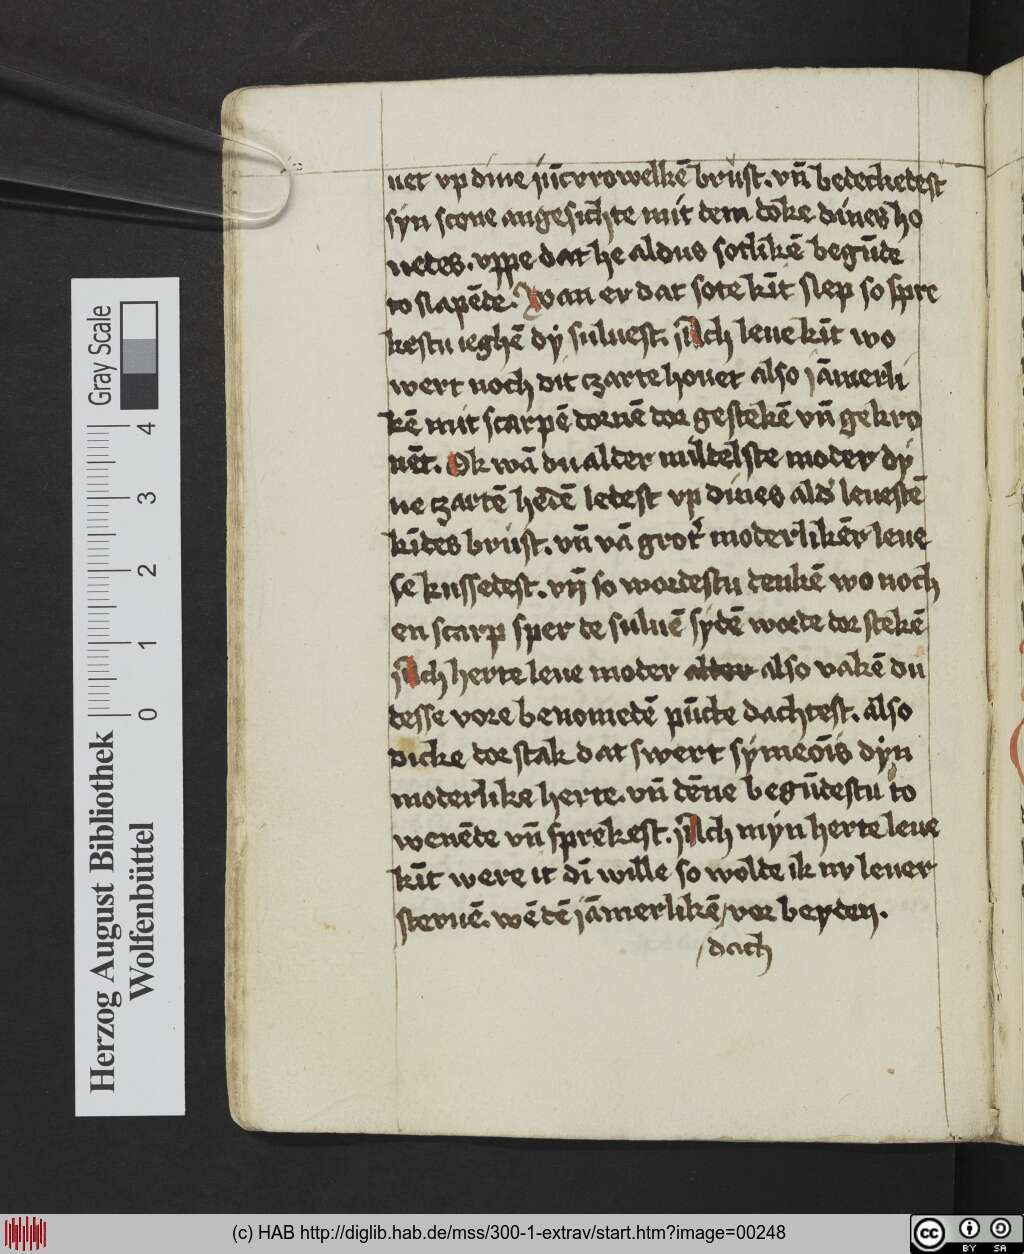 uet vp dine jūcvrowelkē brüst. vn̄ bedeckedest
syn scone angesichte mit dem doke dines ho
uedes. vppe dat he aldus sotlikē begūde
to slapēde. Wan er dat sote kīt slep so spre
kestu ieghē dẏ suluest. Ach leue kīt wo
wert noch dit czarte houet also jāmerli
kē mit scarpē dornē dor gestekē vn̄ gekro
nēt. Ok wā du alder mildelste moder dy
ne czartē hēdē ledest vp dines ald' leuestē
kīdes brüst. vn̄ vā grot' moderlikēr leue
se kussedest. vn̄ so wordestu denkē wo noch
en scarp sper de suluē sydē worde dor stekē
Ach herte leue moder alder also vakē du
desse vore benomedē pūcte dachtest. also
dicke dor stak dat swert symeōis dyn
moderlike herte. vn̄ dēne begūdestu to
wenēde vn̄ sprekest. Ach myn herte leue
kīt were it dī wille so wolde ik nv leuer
steruē. wē dē jāmerlikē / vor beyden.
/ dach
Gray Scale
4
3
2
1
0
Herzog August Bibliothek
Wolfenbüttel
(c) HAB http://diglib.hab.de/mss/300-1-extrav/start.htm?image=00248
cc BY SA